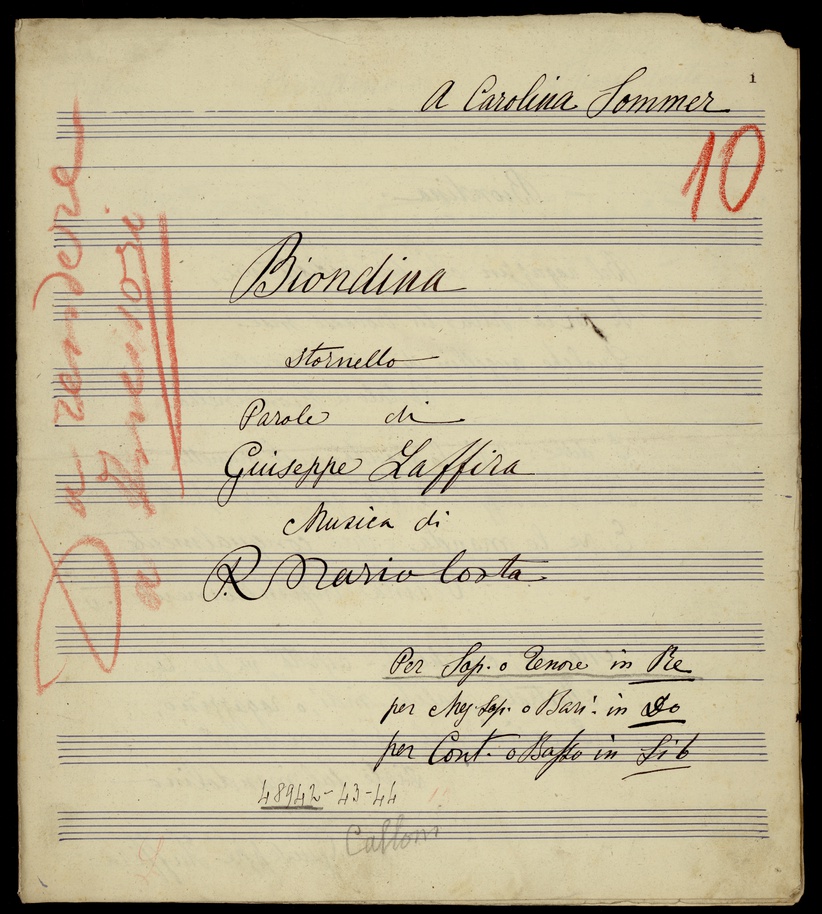 1
A Carolina Sommer
10
Biondina
Stornello
Parole di
Giuseppe Zaffira
Musica di
P. Mario Costa
Per Sop. o Tenore in Re
per Mez. Sop. o Bari. in Do
per Cont. o Basso in Si b
48942-43-44
Da rendere
a